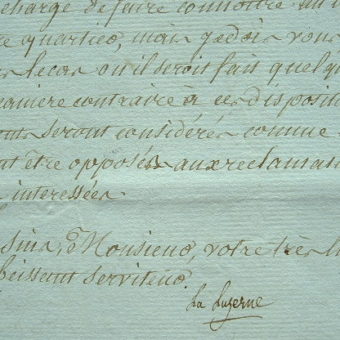 charge de faire connoitre
ce quartier, mais je dois vous
le cas où il seroit fait quelqu
maniere contraire à ces disposit
seront considérés comme
être opposés aux reclamat
interessées.
suis, Monsieur, votre très h
beissant serviteur.
La Luzerne